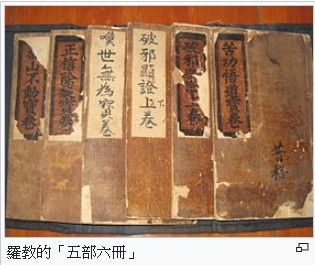 苦功悟道寶卷
破邪 上卷
破邪顯證上卷
下
嘆世無為寶卷
正信除 寶卷
山不動寶卷
羅教的「五部六冊」